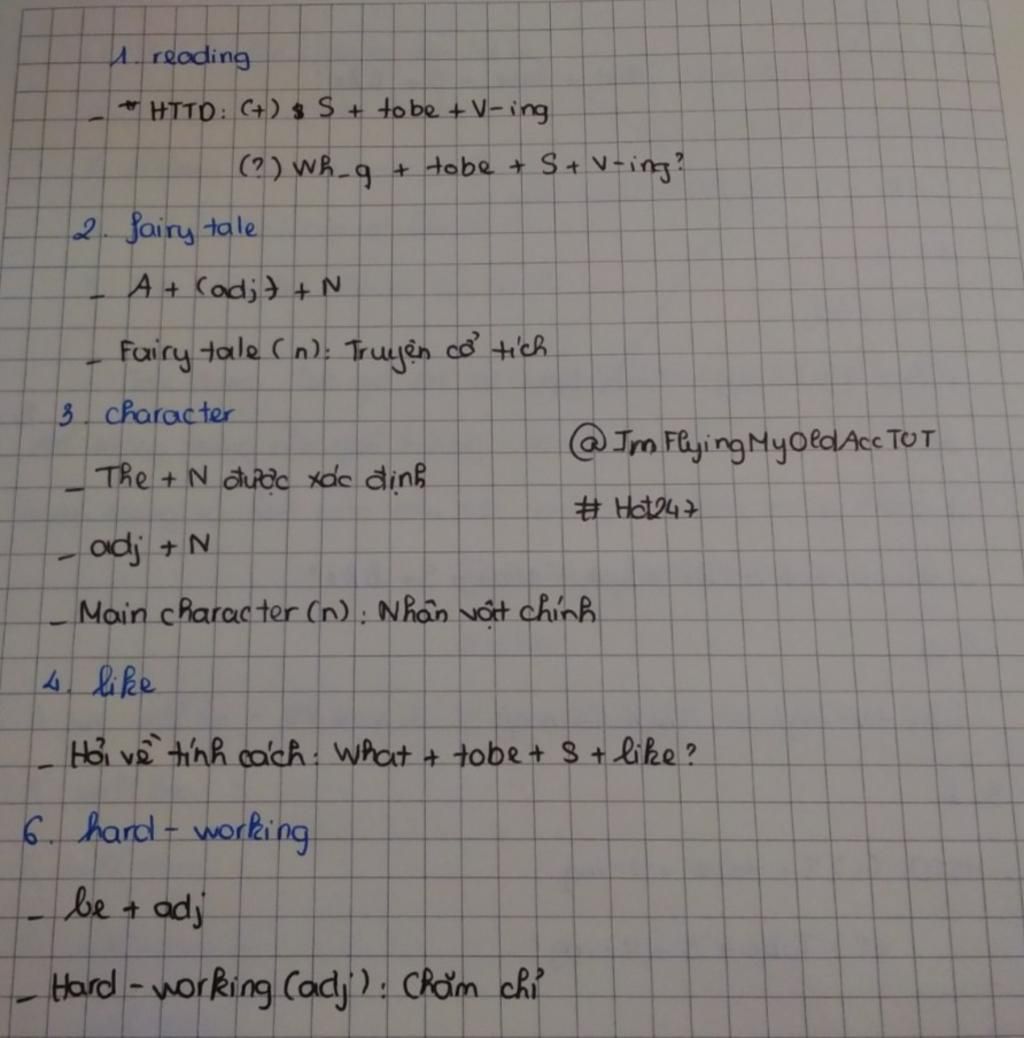 1. reading
- * HTTD: (+) S + tobe + V-ing
(?) Wh_q + tobe + S + V-ing?
2. fairy tale
- A + (adj) + N
- Fairy tale (n): Truyện cổ tích
3. character
- The + N được xác định
@ImFlyingMyOldAccTOT
# Hot247
- adj + N
- Main character (n): Nhân vật chính
4. like
- Hỏi về tính cách: What + tobe + S + like?
6. hard - working
- be + adj
- Hard - working (adj): Chăm chỉ